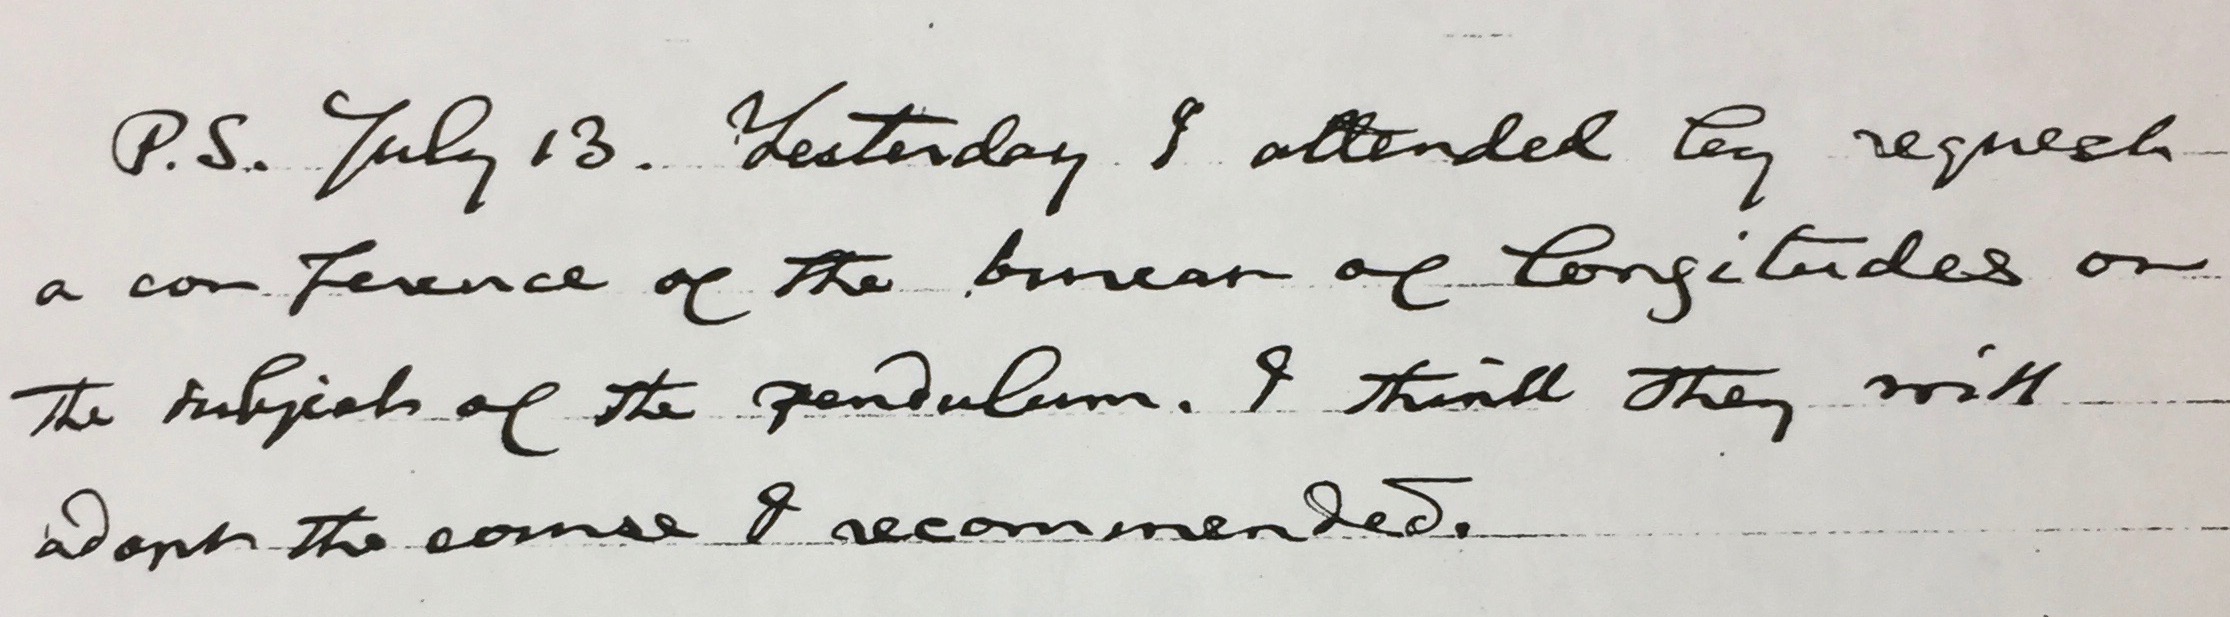 P.S. July 13. Yesterday I attended by request
a conference of the bureau of longitudes on
the subject of the pendulum. I think they will
adopt the course I recommended.